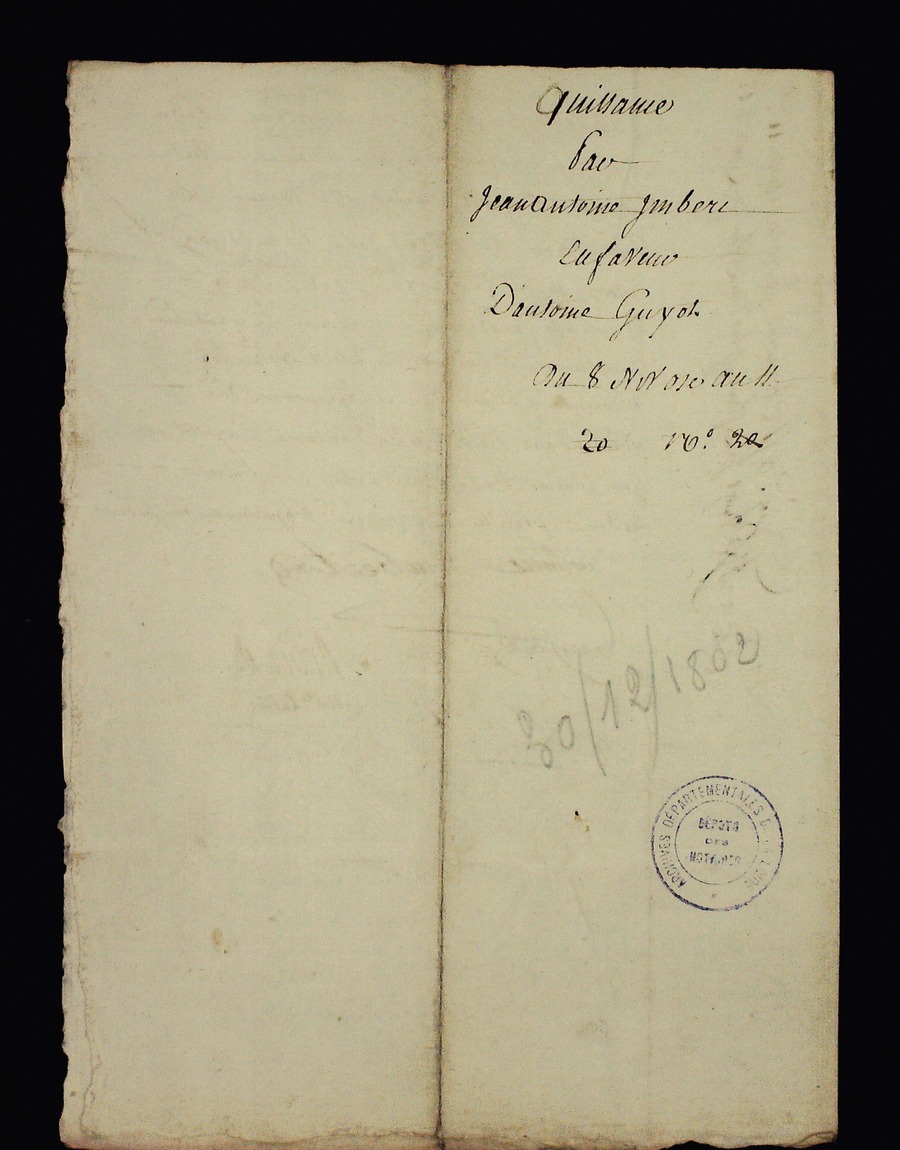 quittance
Par
Jean antoine Imbert
En faveur
Dantoine Guyot
Du 8 Nivose an 11
20 No. 20
30/12/1802
ARCHIVES DÉPARTEMENTALES DE LA LOIRE
DÉPOTS
DES
NOTAIRES